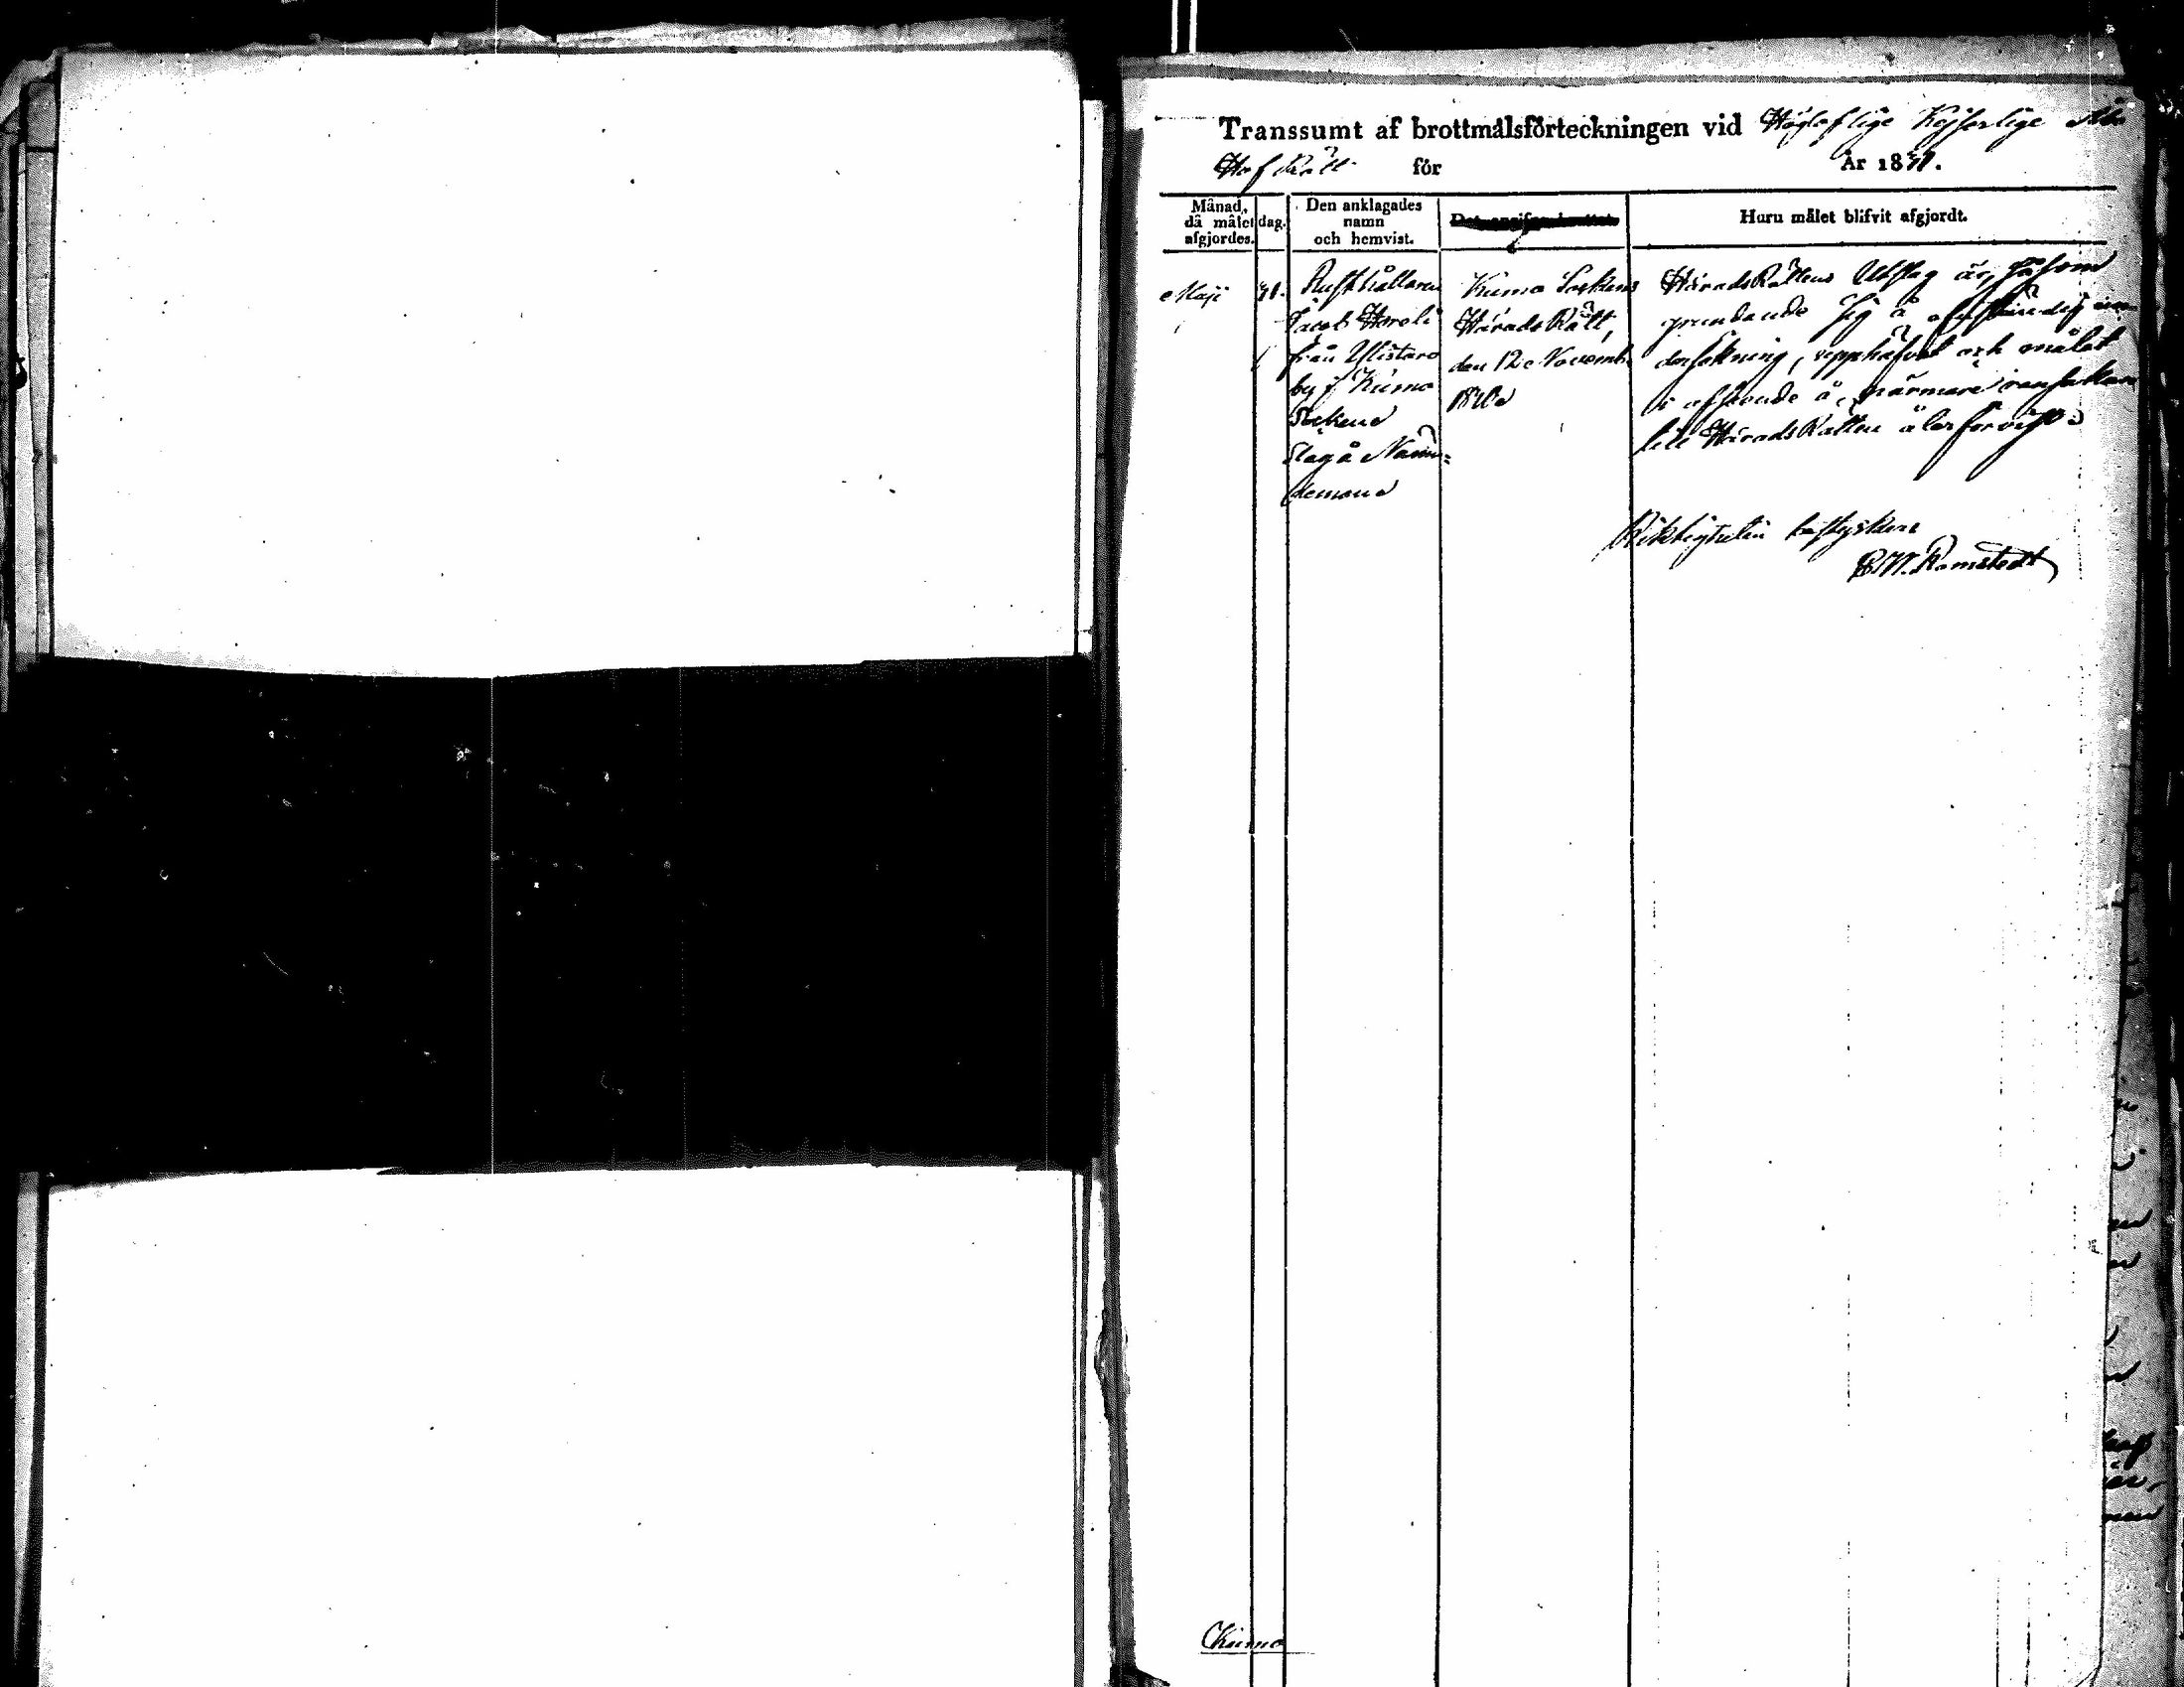 Transsumt af brottmålsförteckningen vid Högloflige Kejserlige Åbo
Hof Rätt för År 1841.
Månad, då målet afgjordes. dag. Den anklagades namn och hemvist. Huru målet blifvit afgjordt.
Maji
Rusthållaren
Jacob
från Ylistaro
by i Kumo
Socken
Slagå Nämn=
deman
Kumo Sockens
Härads Rätt,
den 12 Novemb.
1840
HäradsRättens Utslag är, såsom
grundande sig å ofullständig un-
dersökning, upphäfvet och målet
i afseende å närmare ransakan
till HäradsRätten återförvist.
Riktigheten bestyrker
Ramstedt
Kumo